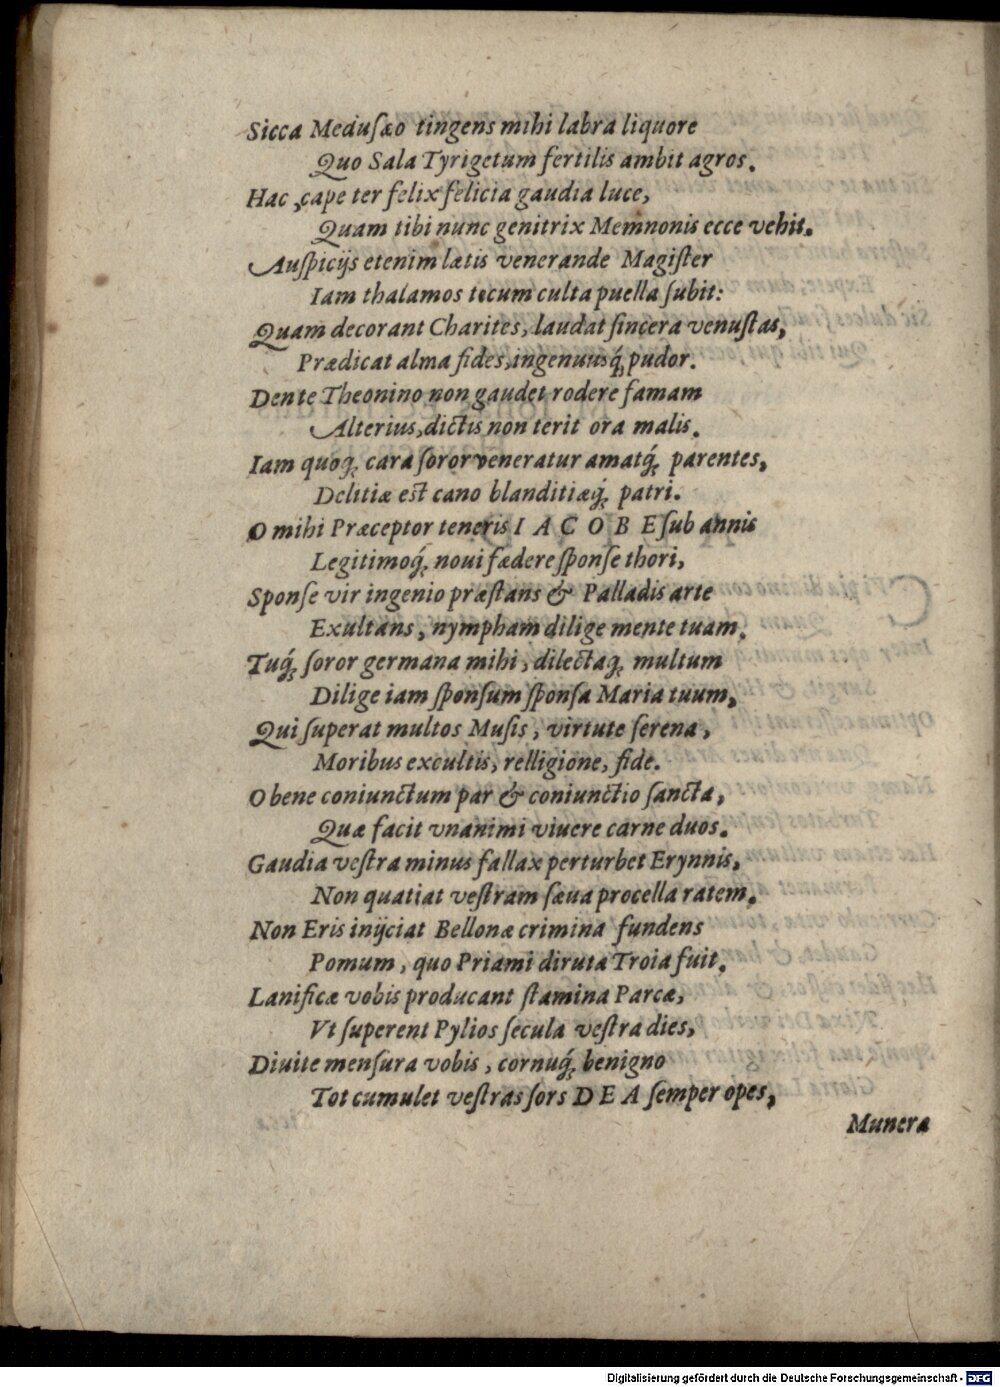 Sicca Meduſæo tingens mihi labra liquore
Quo Sala Tyrigetum fertilis ambit agros.
Hac ,cape ter felix felicia gaudia luce,
Quam tibi nunc genitrix Memnonis ecce vehit.
Auſpicijs etenim lætis venerande Magiſter
Iam thalamos tecum culta puella ſubit:
Quam decorant Charites, laudat ſincera venuſtas,
Prædicat alma fides, ingenuusq́; pudor.
Dente Theonino non gaudet rodere famam
Alterius, dictis non terit ora malis.
Iam quoq; cara ſoror veneratur amatq́; parentes,
Delitiæ eſt cano blanditiæq́; patri.
O mihi Præceptor teneris I A C O B E ſub annis
Legitimoq́; noui fædere ſponſe thori,
Sponſe vir ingenio præſtans & Palladis arte
Exultans, nympham dilige mente tuam.
Tuq́; ſoror germana mihi, dilectaq; multum
Dilige iam ſponſum ſponſa Maria tuum,
Qui ſuperat multos Muſis, virtute ſerena,
Moribus excultis, relligione, fide.
O bene coniunctum par & coniunctio ſancta,
Quæ facit vnanimi viuere carne duos.
Gaudia veſtra minus fallax perturbet Erynnis,
Non quatiat veſtram ſæua procella ratem.
Non Eris inijciat Bellonæ crimina fundens
Pomum, quo Priami diruta Troia fuit.
Lanificæ vobis producant ſtamina Parcæ,
Vt ſuperent Pylios ſecula veſtra dies,
Diuite menſura vobis, cornuq́; benigno
Tot cumulet veſtras ſors D E A ſemper opes,
Munera
Digitalisierung gefördert durch die Deutsche Forschungsgemeinschaft - DFG